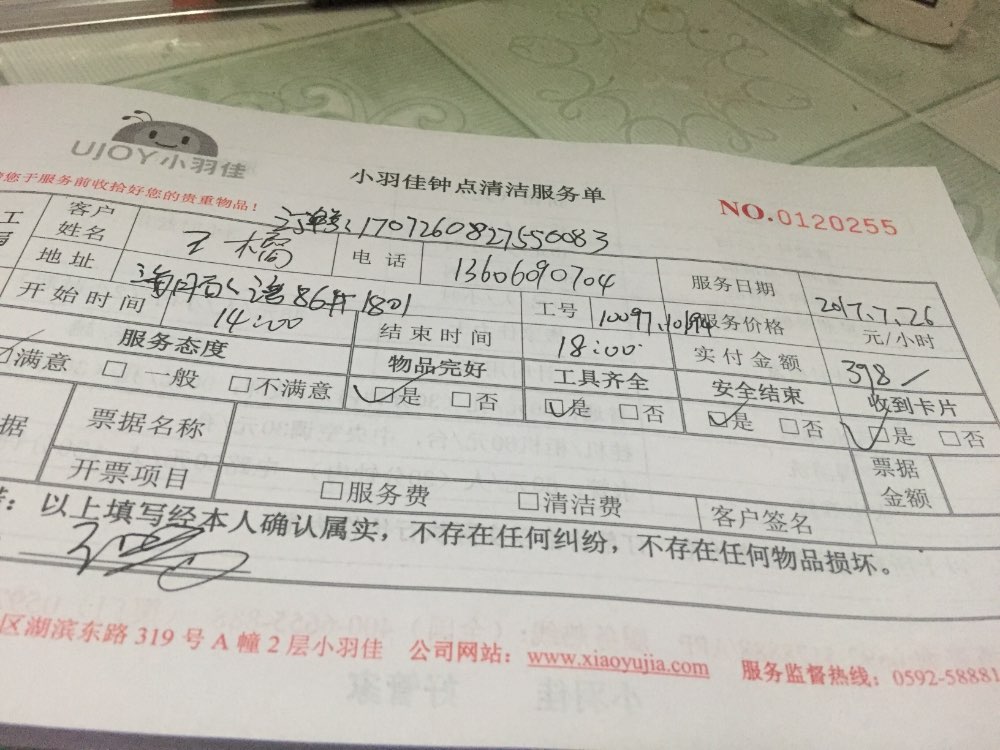 UJOY小羽佳
小羽佳钟点清洁服务单
您于服务前收拾好您的贵重物品！
NO.0120255
1707260827550083
客户姓名 王 电话 13606090704 服务日期 2017.7.26
地址 86# 1801 工号 10097.10194 服务价格 元/小时
开始时间 14:00 结束时间 18:00 实付金额 398
服务态度 物品完好 工具齐全 安全结束 收到卡片
☑满意 □一般 □不满意 ☑是 □否 ☑是 □否 ☑是 □否 ☑是 □否
据 票据名称 票据金额
开票项目 □服务费 □清洁费 客户签名
：以上填写经本人确认属实，不存在任何纠纷，不存在任何物品损坏。
区湖滨东路 319 号 A 幢 2 层小羽佳 公司网站：www.xiaoyujia.com 服务监督热线：0592-58881